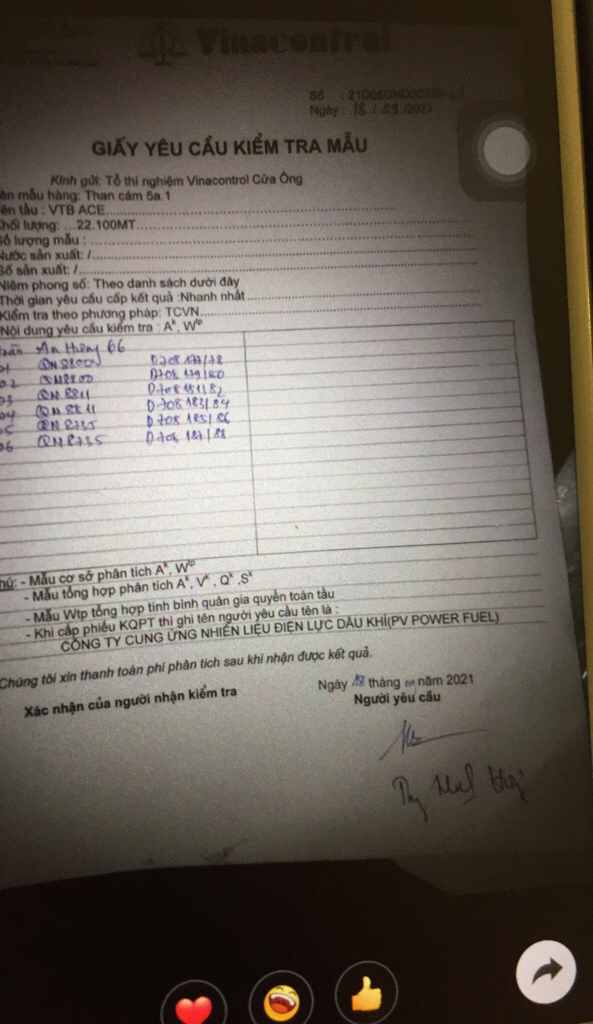 Vinacontrol
Số :
Ngày : 18 / 09 /2021
GIẤY YÊU CẦU KIỂM TRA MẪU
Kính gửi: Tổ thí nghiệm Vinacontrol Cửa Ông
ên mẫu hàng: Than cám 5a.1
ên tàu : VTB ACE
hối lượng: ...22.100MT
ố lượng mẫu :
Nước sản xuất: /
Số sản xuất: /
Niêm phong số: Theo danh sách dưới đây
Thời gian yêu cầu cấp kết quả :Nhanh nhất
Kiểm tra theo phương pháp: TCVN
Nội dung yêu cầu kiểm tra : Aᵏ, Wᵗᵖ
66
01 D708 177/78
02 QN8800 D708 179/80
03 QN 8811 D708 181/82
04 QN 8811 D708 183/84
05 D708 185/86
06 QN 8735 D708 187/88
hú: - Mẫu cơ sở phân tích Aᵏ, Wᵗᵖ
- Mẫu tổng hợp phân tích Aᵏ, Vᵏ, Qᵏ ,Sᵏ
- Mẫu Wtp tổng hợp tính bình quân gia quyền toàn tàu
- Khi cấp phiếu KQPT thì ghi tên người yêu cầu tên là :
CÔNG TY CUNG ỨNG NHIÊN LIỆU ĐIỆN LỰC DẦU KHÍ(PV POWER FUEL)
Chúng tôi xin thanh toán phí phân tích sau khi nhận được kết quả.
Ngày 18 tháng 09 năm 2021
Xác nhận của người nhận kiểm tra Người yêu cầu